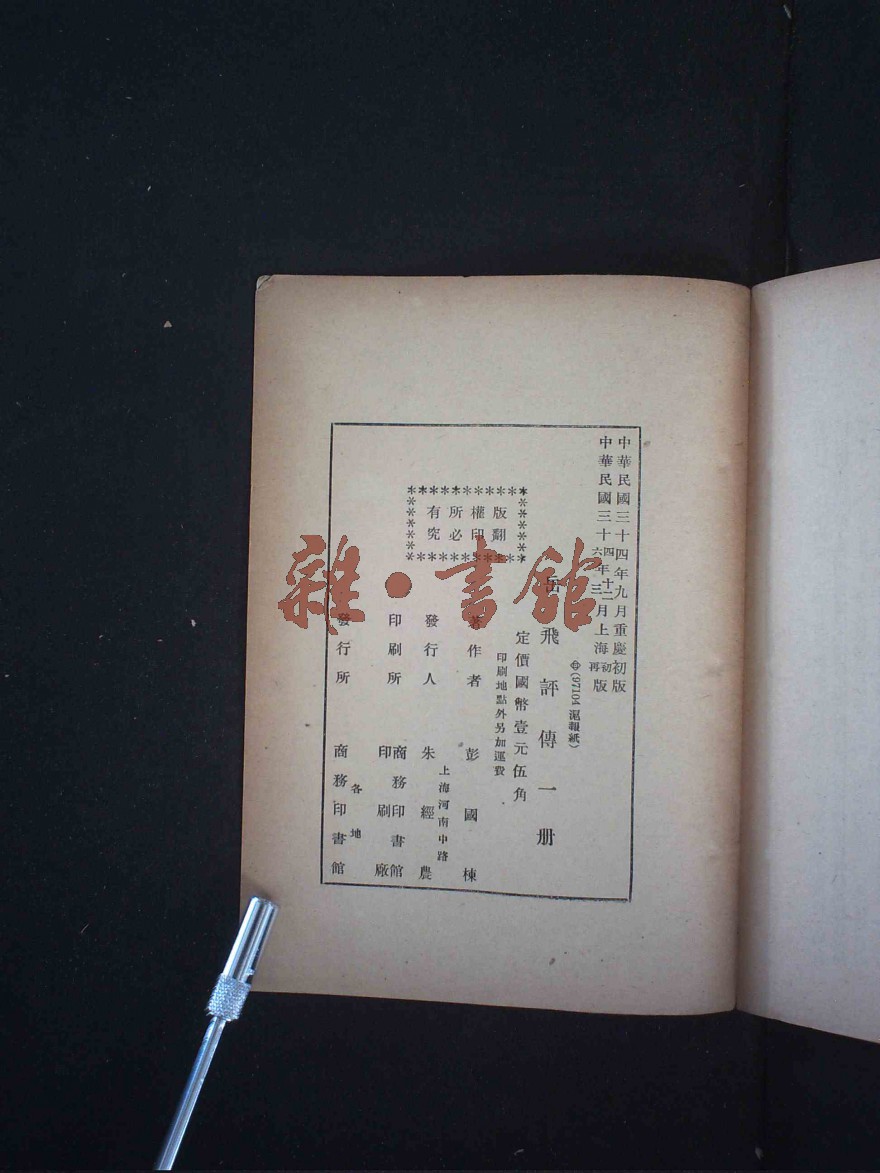 中華民國三十四年九月重慶初版
中華民國三十四年十二月上海初版
六 三 再
㊥(97104滬報紙)
岳飛評傳一册
定價國幣壹元伍角
印刷地點外另加運費
版權所有
翻印必究
著作者 彭國棟
上海河南中路
發行人 朱經農
印刷所 商務印書館
印刷廠
各地
發行所 商務印書館
雜·書館